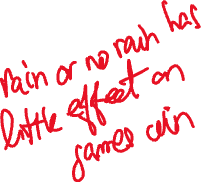 rain or no rain has
little effect on
james